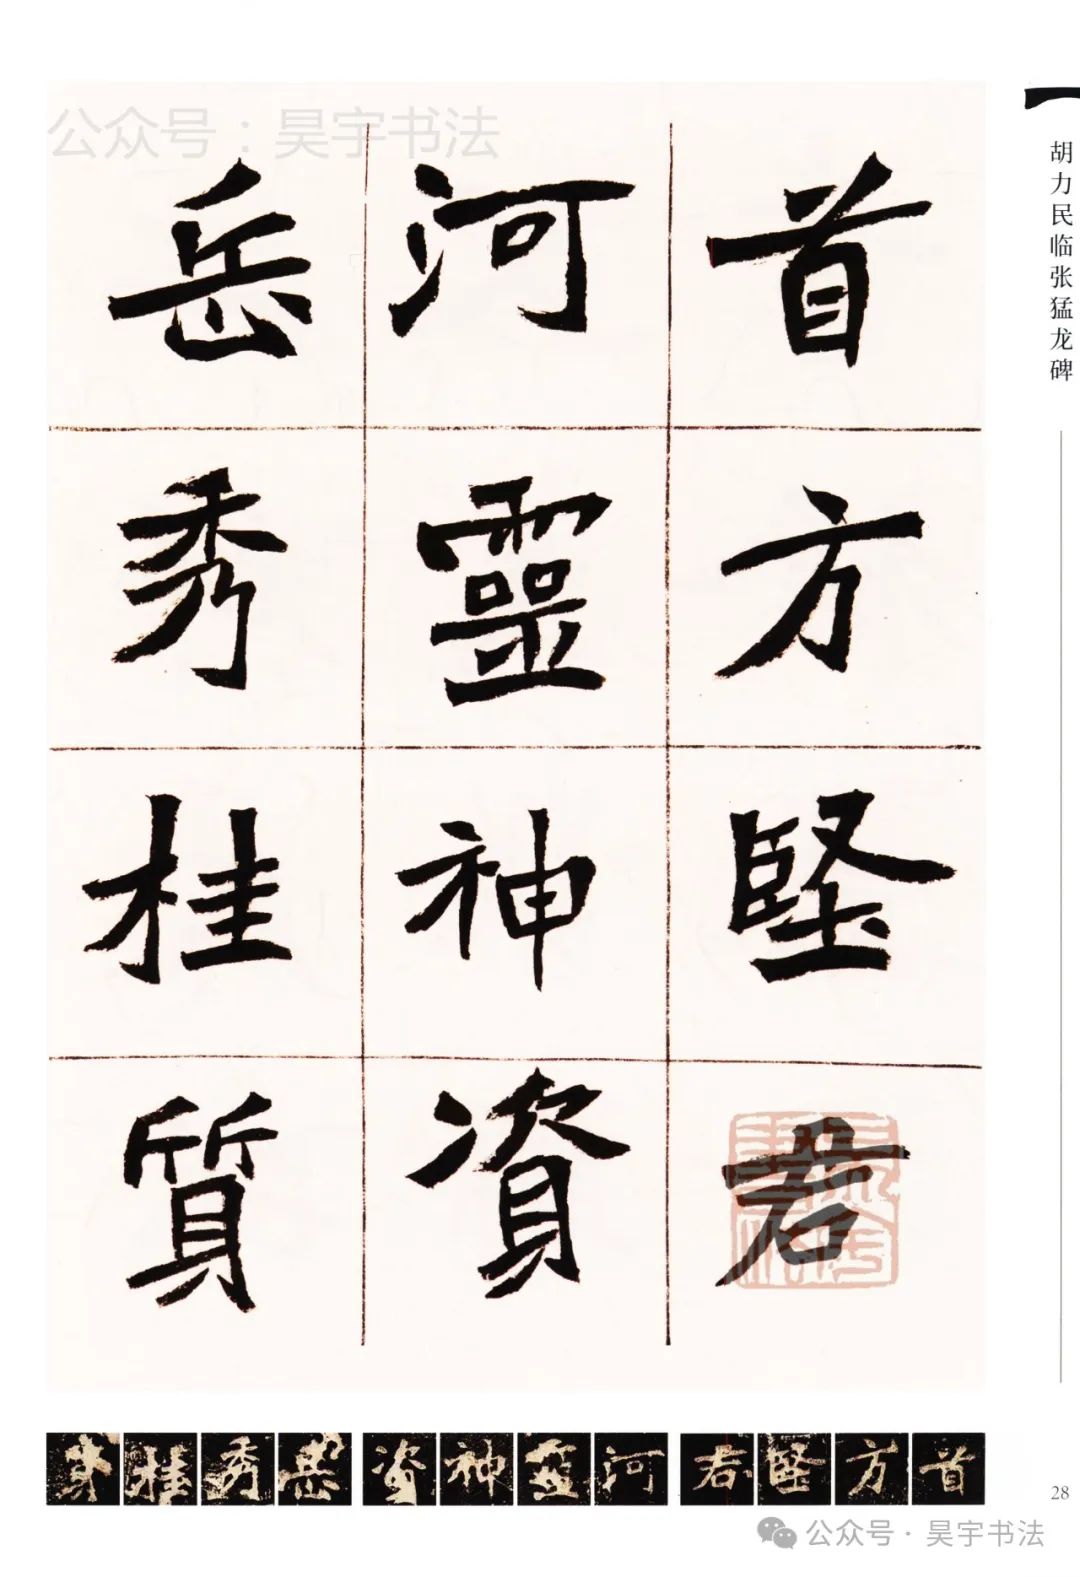 公众号：昊宇书法
胡力民临张猛龙碑
首方堅君
河靈神資
岳秀桂質
首方堅君河靈神資岳秀桂質
28
公众号·昊宇书法